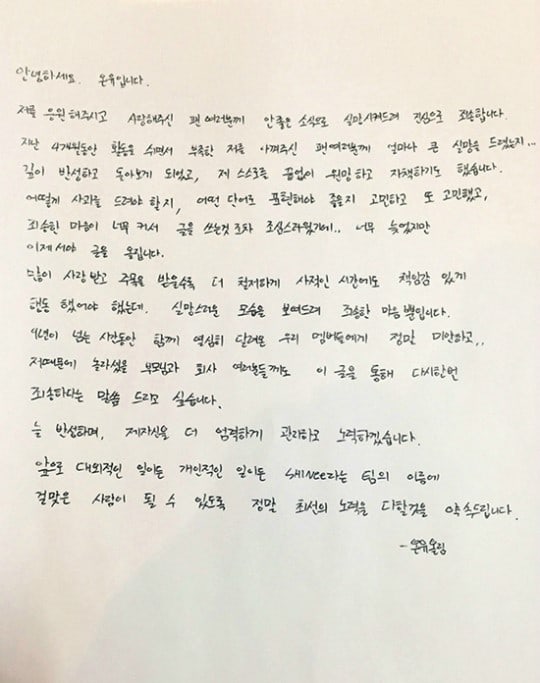 안녕하세요. 온유입니다.
저를 응원해주시고 사랑해주신 팬여러분께 안좋은 소식으로 실망시켜드려 진심으로 죄송합니다.
지난 4개월동안 활동을 쉬면서 부족한 저를 아껴주신 팬여러분께 얼마나 큰 실망을 드렸는지...
깊이 반성하고 돌아보게 되었고, 제 스스로를 끊임없이 원망하고 자책하기도 했습니다.
어떻게 사과를 드려야 할지, 어떤 단어로 표현해야 좋을지 고민하고 또 고민했고,
죄송한 마음이 너무 커서 글을 쓰는것 조차 조심스러웠기에.. 너무 늦었지만
이제서야 글을 올립니다.
많이 사랑 받고 주목을 받을수록 더 철저하게 사적인 시간에도 책임감 있게
행동 했어야 했는데. 실망스러운 모습을 보여드려 죄송한 마음 뿐입니다.
9년이 넘는 시간동안 함께 열심히 달려온 우리 멤버들에게 정말 미안하고,,
저때문에 놀라셨을 부모님과 회사 여러분들께도 이 글을 통해 다시한번
죄송하다는 말씀 드리고 싶습니다.
늘 반성하며, 제자신을 더 엄격하게 관리하고 노력하겠습니다.
앞으로 대외적인 일이든 개인적인 일이든 SHINee라는 팀의 이름에
걸맞은 사람이 될 수 있도록 정말 최선의 노력을 다할것을 약속드립니다.
-온유올림